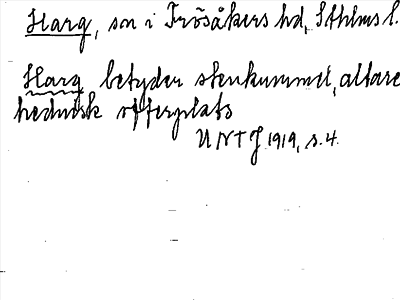 Harg, sn i Frösåkers hd, Sthlms l.
Harg betyder stenkummel, altare
hednisk offerplats
UNTJ 1919, s. 4.